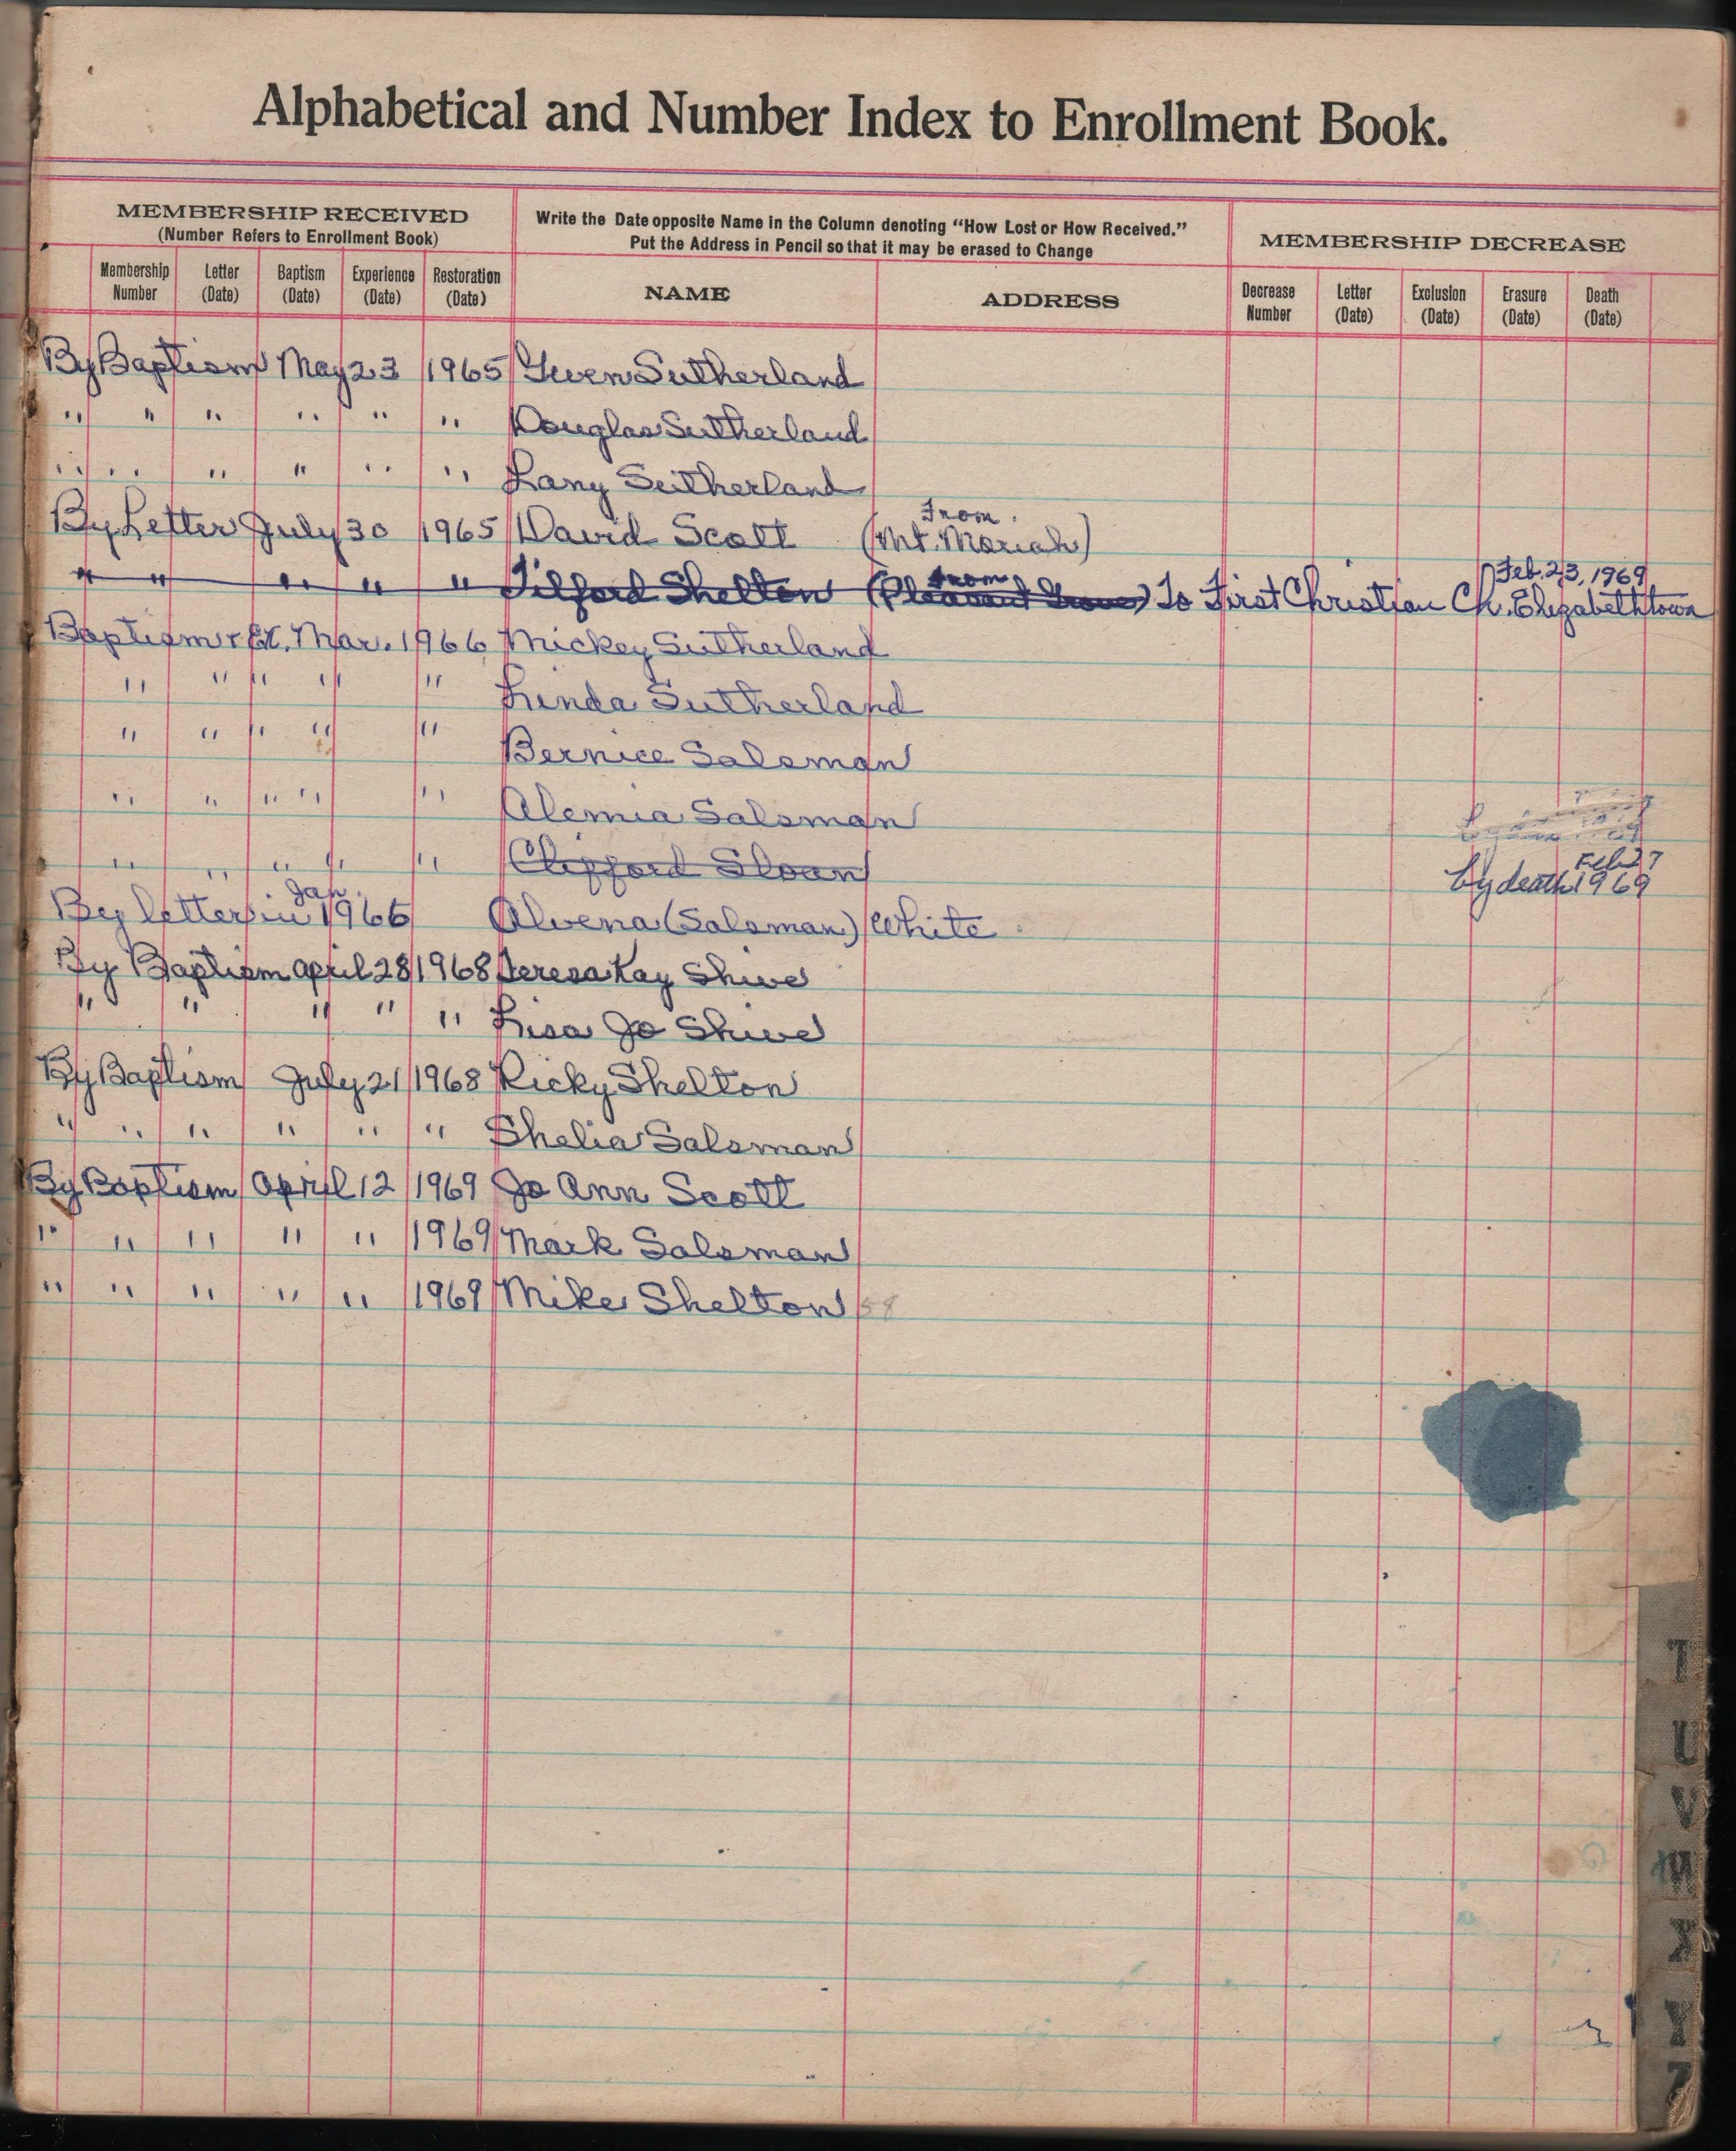 Alphabetical and Number Index to Enrollment Book.
MEMBERSHIP RECEIVED
(Number Refers to Enrollment Book)
Write the Date opposite Name in the Column denoting "How Lost or How Received."
Put the Address in Pencil so that it may be erased to Change
MEMBERSHIP DECREASE
Membership Number Letter (Date) Baptism (Date) Experience (Date) Restoration (Date) NAME ADDRESS Decrease Number Letter (Date) Exclusion (Date) Erasure (Date) Death (Date)
By Baptism May 23 1965 Gwen Sutherland
" " " " " " Douglas Sutherland
" " " " " " Lany Sutherland
By Letter July 30 1965 David Scott (From Mt. Moriah)
" " " " " Tilford Shelton (From Pleasant Grove) To First Christian Ch. Elizabethtown Feb. 23, 1969
Baptism + Ex. Mar. 1966 Mickey Sutherland
" " " " " Linda Sutherland
" " " " " Bernice Salsman
" " " " " Alemia Salsman
" " " " " Clifford Sloan by death Feb 27 1969
By letter in Jan. 1966 Alvena (Salsman) White
By Baptism April 28 1968 Teresa Kay Shive
" " " " " Lisa Jo Shive
By Baptism July 21 1968 Ricky Shelton
" " " " " " Shelia Salsman
By Baptism April 12 1969 Jo Ann Scott
" " " " " 1969 Mark Salsman
" " " " " 1969 Mike Shelton 58
T
U
V
W
X
Y
Z